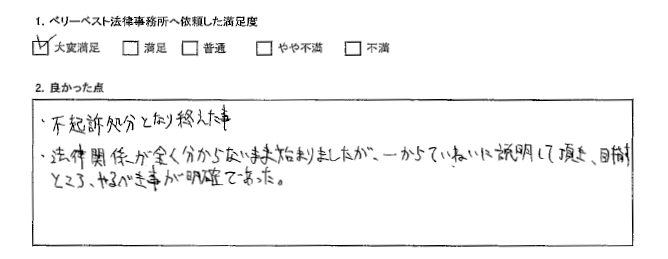 1. ベリーベスト法律事務所へ依頼した満足度
大変満足 満足 普通 やや不満 不満
2. 良かった点
・不起訴処分となり終えた事
・法律関係が全く分からないまま始まりましたが、一からていねいに説明して頂き、目指す
ところ、やるべき事が明確であった。